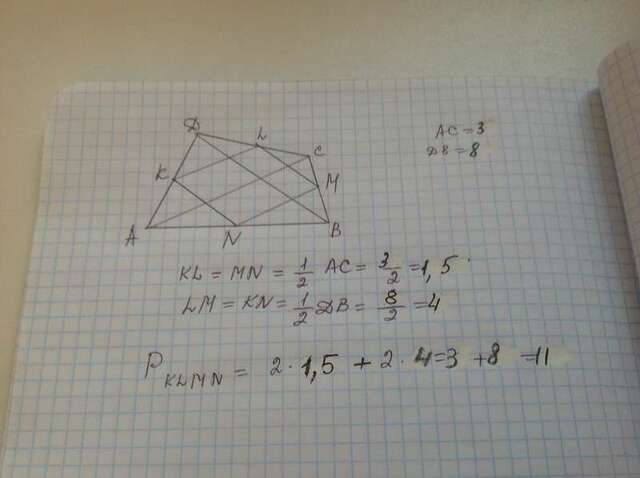 D L C
AC = 3
DB = 8
K M
A N B
KL = MN = 1/2 AC = 3/2 = 1,5
LM = KN = 1/2 DB = 8/2 = 4
P KLMN = 2 · 1,5 + 2 · 4 = 3 + 8 = 11